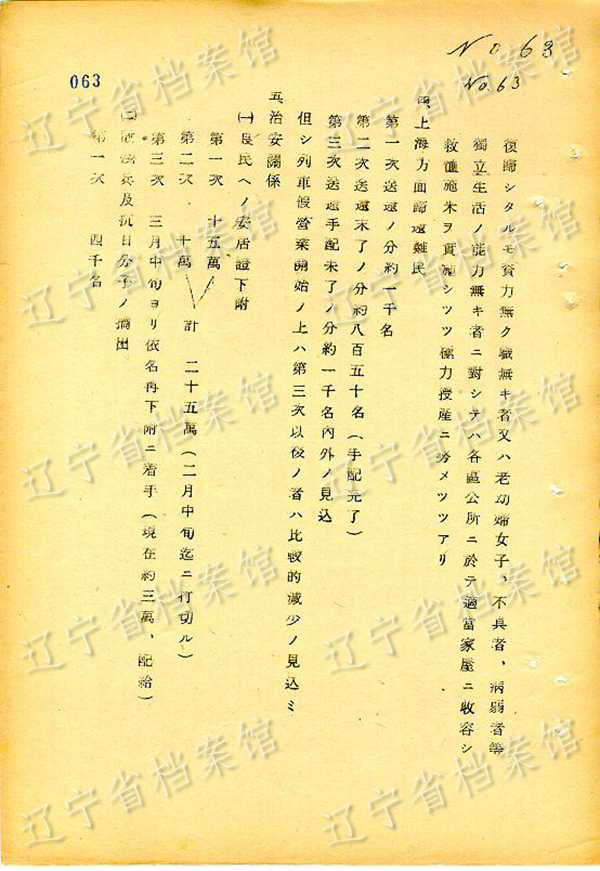 No 63
No.63
063
復歸シタルモ資力無ク職無キ者又ハ老幼婦女子、不具者、病弱者等
獨立生活ノ能力無キ者ニ對シテハ各區公所ニ於テ適當家屋ニ收容シ
救恤施米ヲ實施シツツ極力授産ニ努メツツアリ
四、上海方面歸還難民
第一次送還ノ分約一千名
第二次送還未了ノ分約八百五十名(手配完了)
第三次送還手配未了ノ分約一千名內外ノ見込
但シ列車假營業開始ノ上ハ第三次以後ノ者ハ比較的減少ノ見込ミ
五、治安關係
㈠良民ヘノ安居證下附
第一次 十五萬
第二次 十萬 計 二十五萬(二月中旬迄ニ打切ル)
第三次 三月中旬ヨリ依名再下附ニ着手(現在約三萬、配給)
㈡ 兵及抗日分子ノ摘出
第一次 四千名
辽宁省档案馆
辽宁省档案馆
辽宁省档案馆
辽宁省档案馆
辽宁省档案馆
辽宁省档案馆
辽宁省档案馆
辽宁省档案馆
辽宁省档案馆
辽宁省档案馆